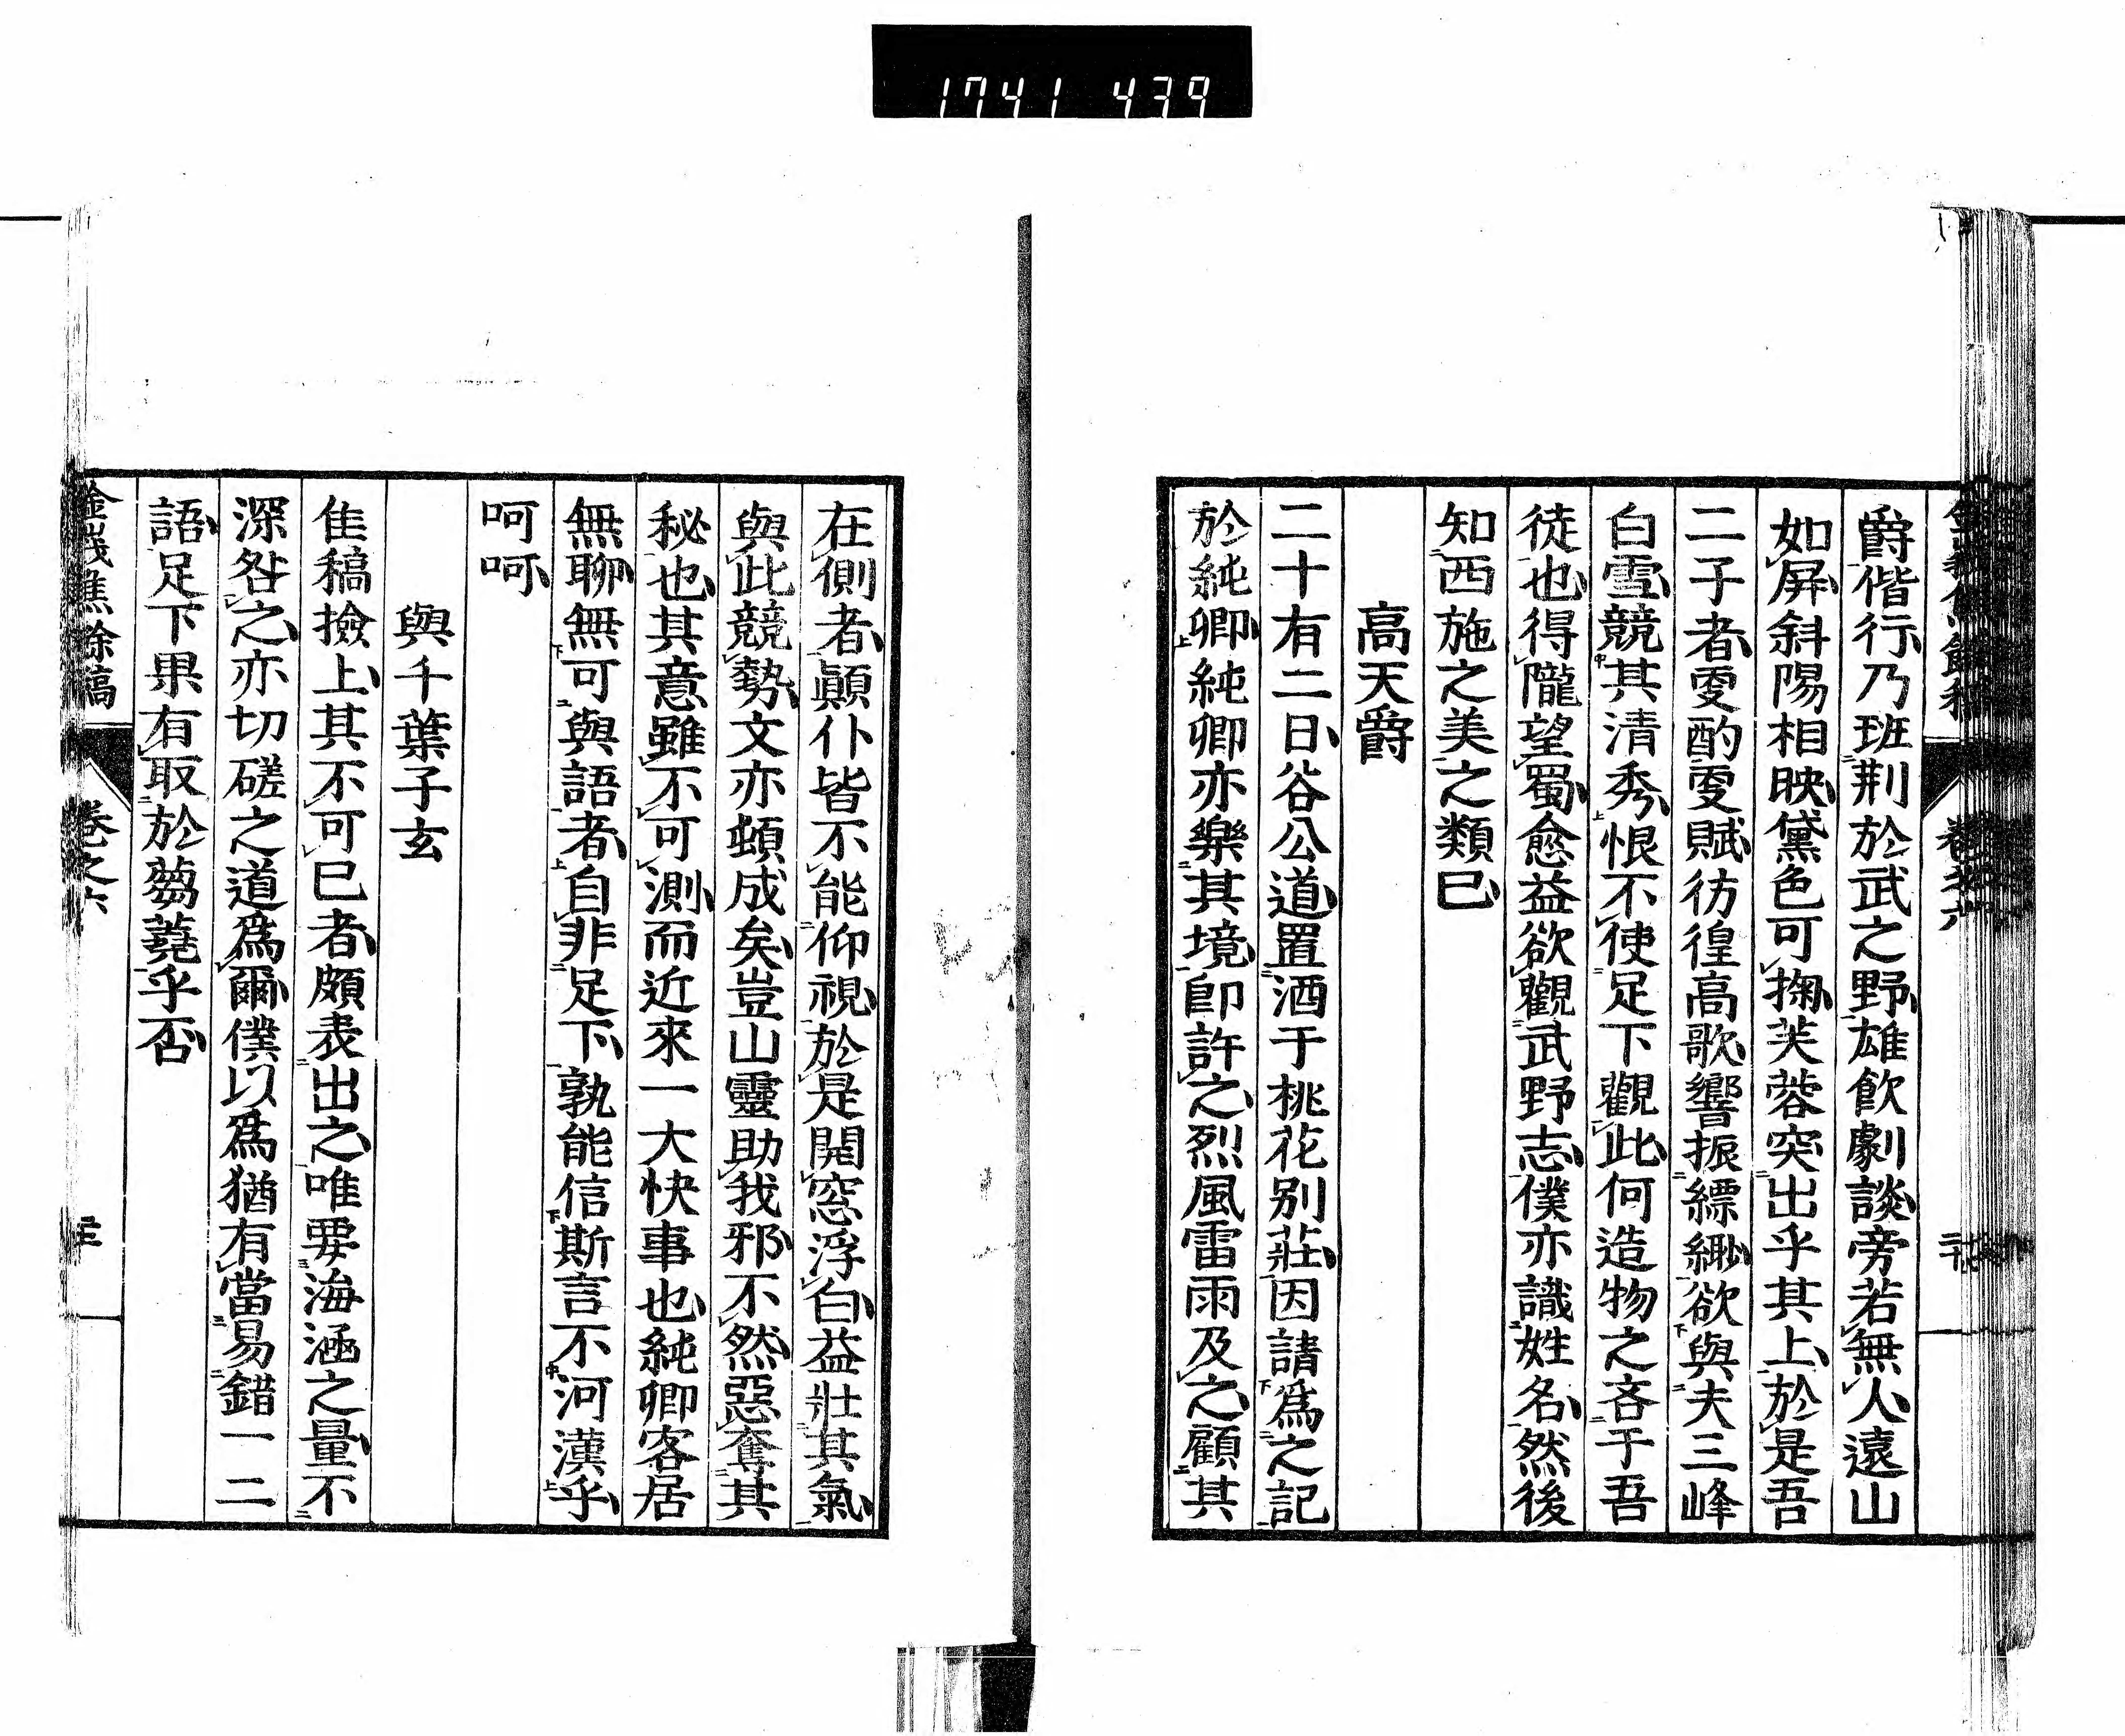 1741 439
爵偕行乃班荆於武之野雄飲劇談旁若無人遠山
如屏斜陽相映黛色可掬芙蓉突出乎其上於是吾
二子者更酌更賦彷徨高歌響振縹緲欲與夫三峰
白雪競其清秀恨不使足下觀此何造物之吝于吾
徒也得隴望蜀愈益欲觀武野志僕亦識姓名然後
知西施之美之類已
高天爵
二十有二日谷公道置酒于桃花別莊因請爲之記
於純卿純卿亦樂其境卽許之烈風雷雨及之顧其
在側者顚仆皆不能仰視於是開窓浮白益壯其氣
與此競勢文亦頓成矣豈山靈助我邪不然惡奪其
秘也其意雖不可測而近來一大快事也純卿客居
無聊無可與語者自非足下孰能信斯言不河漢乎
呵呵
與千葉子玄
隹稿撿上其不可已者頗表出之唯要海涵之量不
深咎之亦切磋之道爲爾僕以爲猶有當易錯一二
語足下果有取於蒭蕘乎否
金峩焦餘稿 卷之六